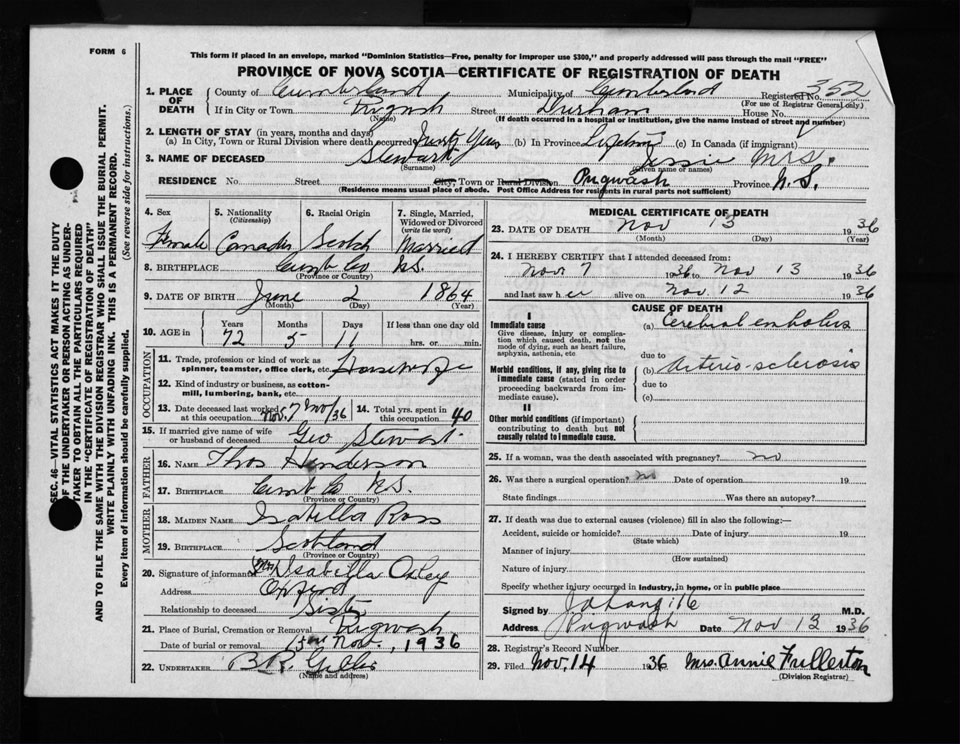 FORM 6
This form if placed in an envelope, marked "Dominion Statistics—Free, penalty for improper use $300," and properly addressed will pass through the mail "FREE"
PROVINCE OF NOVA SCOTIA—CERTIFICATE OF REGISTRATION OF DEATH
SEC. 46—VITAL STATISTICS ACT MAKES IT THE DUTY
OF THE UNDERTAKER OR PERSON ACTING AS UNDER-
TAKER TO OBTAIN ALL THE PARTICULARS REQUIRED
IN THE "CERTIFICATE OF REGISTRATION OF DEATH"
AND TO FILE THE SAME WITH THE DIVISION REGISTRAR WHO SHALL ISSUE THE BURIAL PERMIT.
WRITE PLAINLY WITH UNFADING INK. THIS IS A PERMANENT RECORD.
Every item of information should be carefully supplied. (See reverse side for instructions.)
1. PLACE OF DEATH County of Cumberland Municipality of Cumberland Registered No. 352
(For use of Registrar General only.)
If in City or Town Street Durham House No.
(Name) (If death occurred in a hospital or institution, give the name instead of street and number)
2. LENGTH OF STAY (in years, months and days)
(a) In City, Town or Rural Division where death occurred (b) In Province Lifetime (c) In Canada (if immigrant)
3. NAME OF DECEASED Stewart Jessie Mrs.
(Surname) (Given name or names)
RESIDENCE No. Street City, Town or Rural Division Pugwash Province N.S.
(Residence means usual place of abode. Post Office Address for residents in rural parts not sufficient)
4. Sex Female
5. Nationality (Citizenship)
6. Racial Origin Scotch
7. Single, Married, Widowed or Divorced (write the word) Married
8. BIRTHPLACE Cumb Co N.S.
(Province or Country)
9. DATE OF BIRTH June 2 1864
(Month) (Day) (Year)
10. AGE in Years 72 Months 5 Days 11 If less than one day old hrs. or min.
OCCUPATION
11. Trade, profession or kind of work as spinner, teamster, office clerk, etc. Housewife
12. Kind of industry or business, as cotton-mill, lumbering, bank, etc.
13. Date deceased last worked at this occupation Nov. 7 /36 14. Total yrs. spent in this occupation 40
15. If married give name of wife or husband of deceased Geo Stewart
FATHER
16. NAME Thos Henderson
17. BIRTHPLACE Cumb Co N.S.
(Province or Country)
MOTHER
18. MAIDEN NAME Isabella Ross
19. BIRTHPLACE Scotland
(Province or Country)
20. Signature of informant Mrs Isabella Oxley
Address Oxford
Relationship to deceased Sister
21. Place of Burial, Cremation or Removal Pugwash
Date of burial or removal 15th Nov. 1936
22. UNDERTAKER
(Name and address)
MEDICAL CERTIFICATE OF DEATH
23. DATE OF DEATH Nov 13 1936
(Month) (Day) (Year)
24. I HEREBY CERTIFY that I attended deceased from:
Nov 7 1936 to Nov 13 1936
and last saw her alive on Nov. 12 1936
CAUSE OF DEATH
I
Immediate cause
Give disease, injury or complication which caused death, not the mode of dying, such as heart failure, asphyxia, asthenia, etc
(a) Cerebral embolus
due to
Morbid conditions, if any, giving rise to immediate cause (stated in order proceeding backwards from immediate cause).
(b) Arterio-sclerosis
due to
(c)
II
Other morbid conditions (if important) contributing to death but not causally related to immediate cause.
25. If a woman, was the death associated with pregnancy? no
26. Was there a surgical operation? no Date of operation 19
State findings Was there an autopsy?
27. If death was due to external causes (violence) fill in also the following:—
Accident, suicide or homicide? Date of injury 19
(State which)
Manner of injury
(How sustained)
Nature of injury
Specify whether injury occurred in industry, in home, or in public place
Signed by M.D.
Address Pugwash Date Nov 13 1936
28. Registrar's Record Number
29. Filed Nov. 14 1936 Mrs. Annie Fullerton
(Division Registrar)